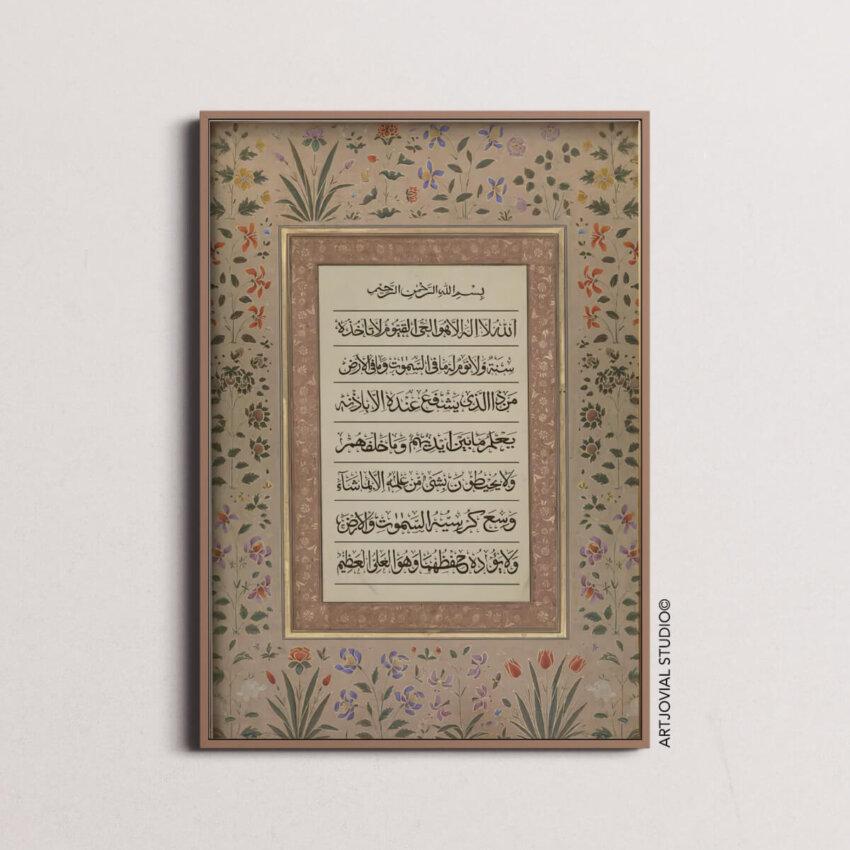 بِسْمِ اللهِ الرَّحْمٰنِ الرَّحِيْمِ
اَللهُ لَا اِلٰهَ اِلَّا هُوَ الْحَىُّ الْقَيُّوْمُ لَا تَاْخُذُهٗ
سِنَةٌ وَّلَا نَوْمٌ لَهٗ مَا فِى السَّمٰوٰتِ وَمَا فِى الْاَرْضِ
مَنْ ذَا الَّذِىْ يَشْفَعُ عِنْدَهٗ اِلَّا بِاِذْنِهٖ
يَعْلَمُ مَا بَيْنَ اَيْدِيْهِمْ وَمَا خَلْفَهُمْ
وَلَا يُحِيْطُوْنَ بِشَىْءٍ مِّنْ عِلْمِهٖ اِلَّا بِمَا شَآءَ
وَسِعَ كُرْسِيُّهُ السَّمٰوٰتِ وَالْاَرْضَ
وَلَا يَئُوْدُهٗ حِفْظُهُمَا وَهُوَ الْعَلِىُّ الْعَظِيْمُ
ARTJOVIAL STUDIO©